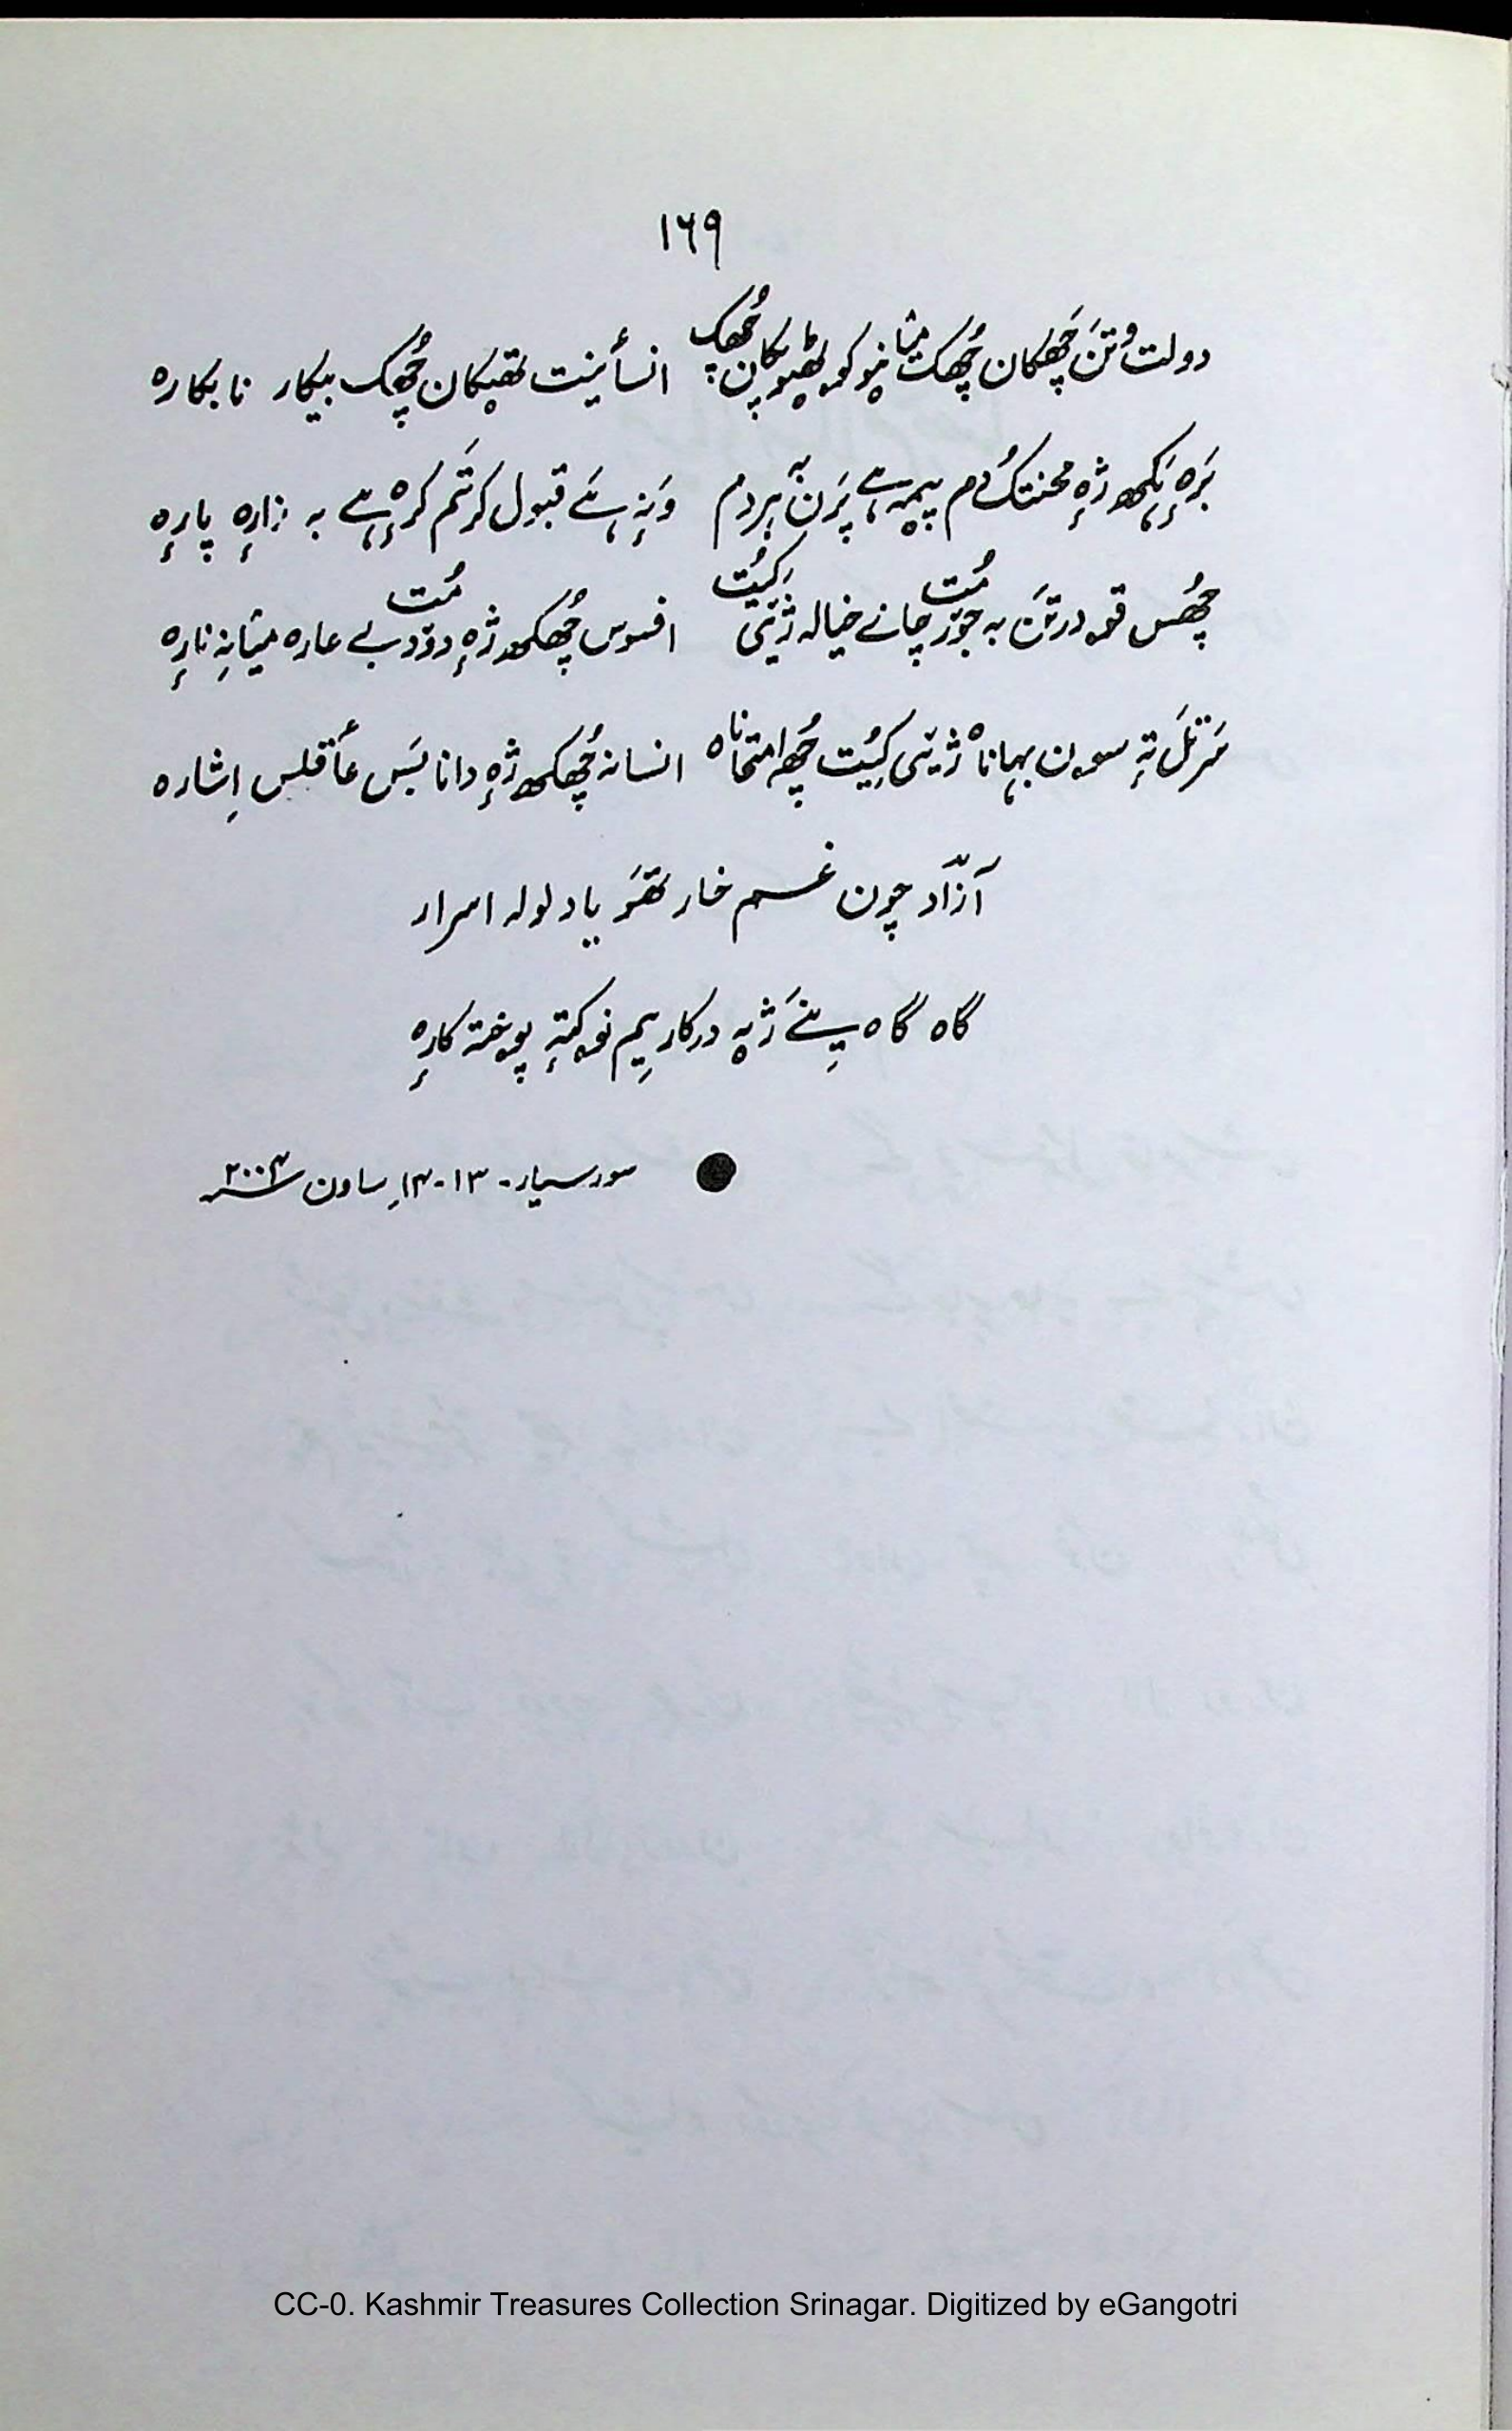 ۱۶۹
دولت وُتَن چَھکان چُھک میٛانٕیو کو ٹھٕیوکان چُھک انسأنیت تھٕپکان چُھک بیکار نابکارہ
بَرٕہ نٕکھ ژٕہ محنتُک دم پیمہٕ ہے پَرَن بہٕ ہردم وَنہٕ ہےَ قبول کرتَم کرٕہ ہے بہ زارٕہ پارٕہ
چُھس قودرتَن بہ جوٚرمُت چانے خیالہ ژیٚتی کیُت افسوس چُھکھ ژٕہ دوٚدمُت بے عارہ میٛانہِ نارٕہ
مَرتَل تہٕ سون بہاناہ ژیٚتی کیُت چُھ امتحاناہ انسانہ چُھکھ ژٕہ دانا بَس عأقلس اِشارہ
آزاد چون غم خار تَھو یاد لولہ اسرار
گاہ گاہ یِنےَ ژٕیہ درکار یِم نوکتہٕ پوختہ کارٕہ
سورسیار۔ ۱۳-۱۴ ساون ۲۰۰۳
CC-0. Kashmir Treasures Collection Srinagar. Digitized by eGangotri